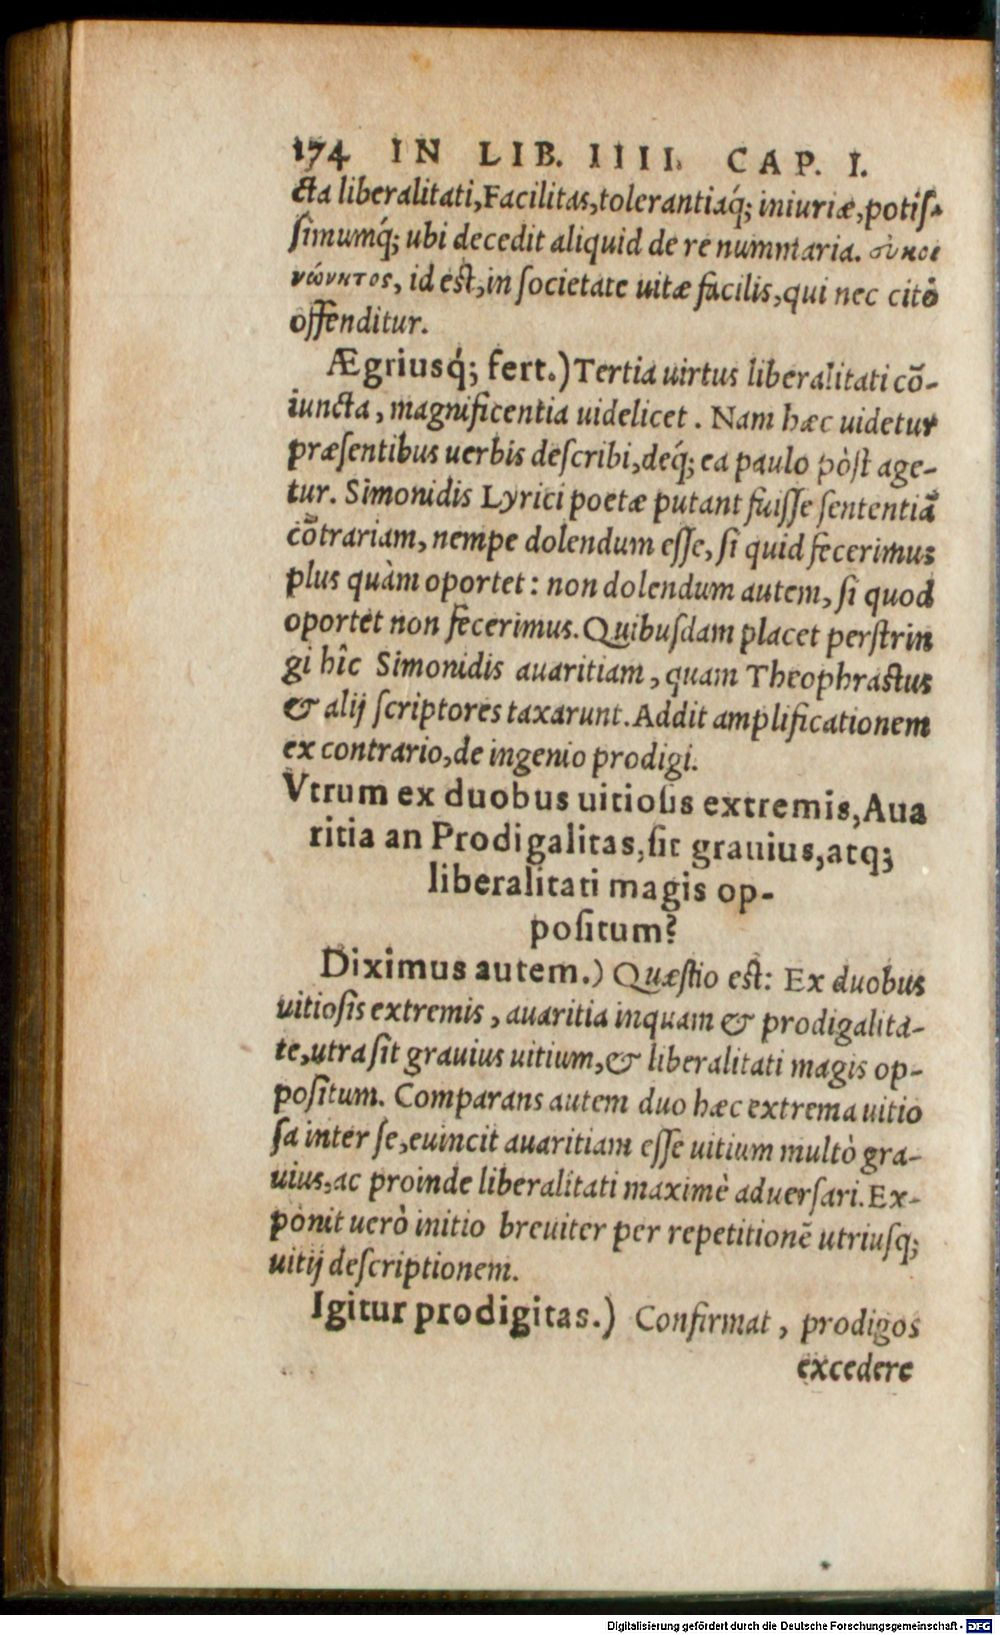 174 IN LIB. IIII. CAP. I.
cta liberalitati, Facilitas, tolerantiaq́; iniuriæ, potiſ-
ſimumq́; ubi decedit aliquid de re nummaria. σὐκοι
νώνητος, id est, in ſocietate uitæ facilis, qui nec citò
offenditur.
Ægriusq́; fert.) Tertia uirtus liberalitati cō-
iuncta, magnificentia uidelicet. Nam hæc uidetur
præſentibus uerbis deſcribi, deq́; ea paulo pòſt age-
tur. Simonidis Lyrici poetæ putant fuiſſe ſententiā
cōtrariam, nempe dolendum eſſe, ſi quid fecerimus
plus quàm oportet: non dolendum autem, ſi quod
oportet non fecerimus. Quibuſdam placet perſtrin
gi hîc Simonidis auaritiam, quam Theophrastus
& alij ſcriptores taxarunt. Addit amplificationem
ex contrario, de ingenio prodigi.
Vtrum ex duobus uitioſis extremis, Aua
ritia an Prodigalitas, ſit grauius, atq;
liberalitati magis op-
poſitum?
Diximus autem.) Quæſtio est: Ex duobus
uitioſis extremis, auaritia inquam & prodigalita-
te, utra ſit grauius uitium, & liberalitati magis op-
poſitum. Comparans autem duo hæc extrema uitio
ſa inter ſe, euincit auaritiam eſſe uitium multò gra-
uius, ac proinde liberalitati maximè aduerſari. Ex-
ponit uerò initio breuiter per repetitionē utriuſq;
uitij deſcriptionem.
Igitur prodigitas.) Confirmat, prodigos
excedere
Digitalisierung gefördert durch die Deutsche Forschungsgemeinschaft - DFG